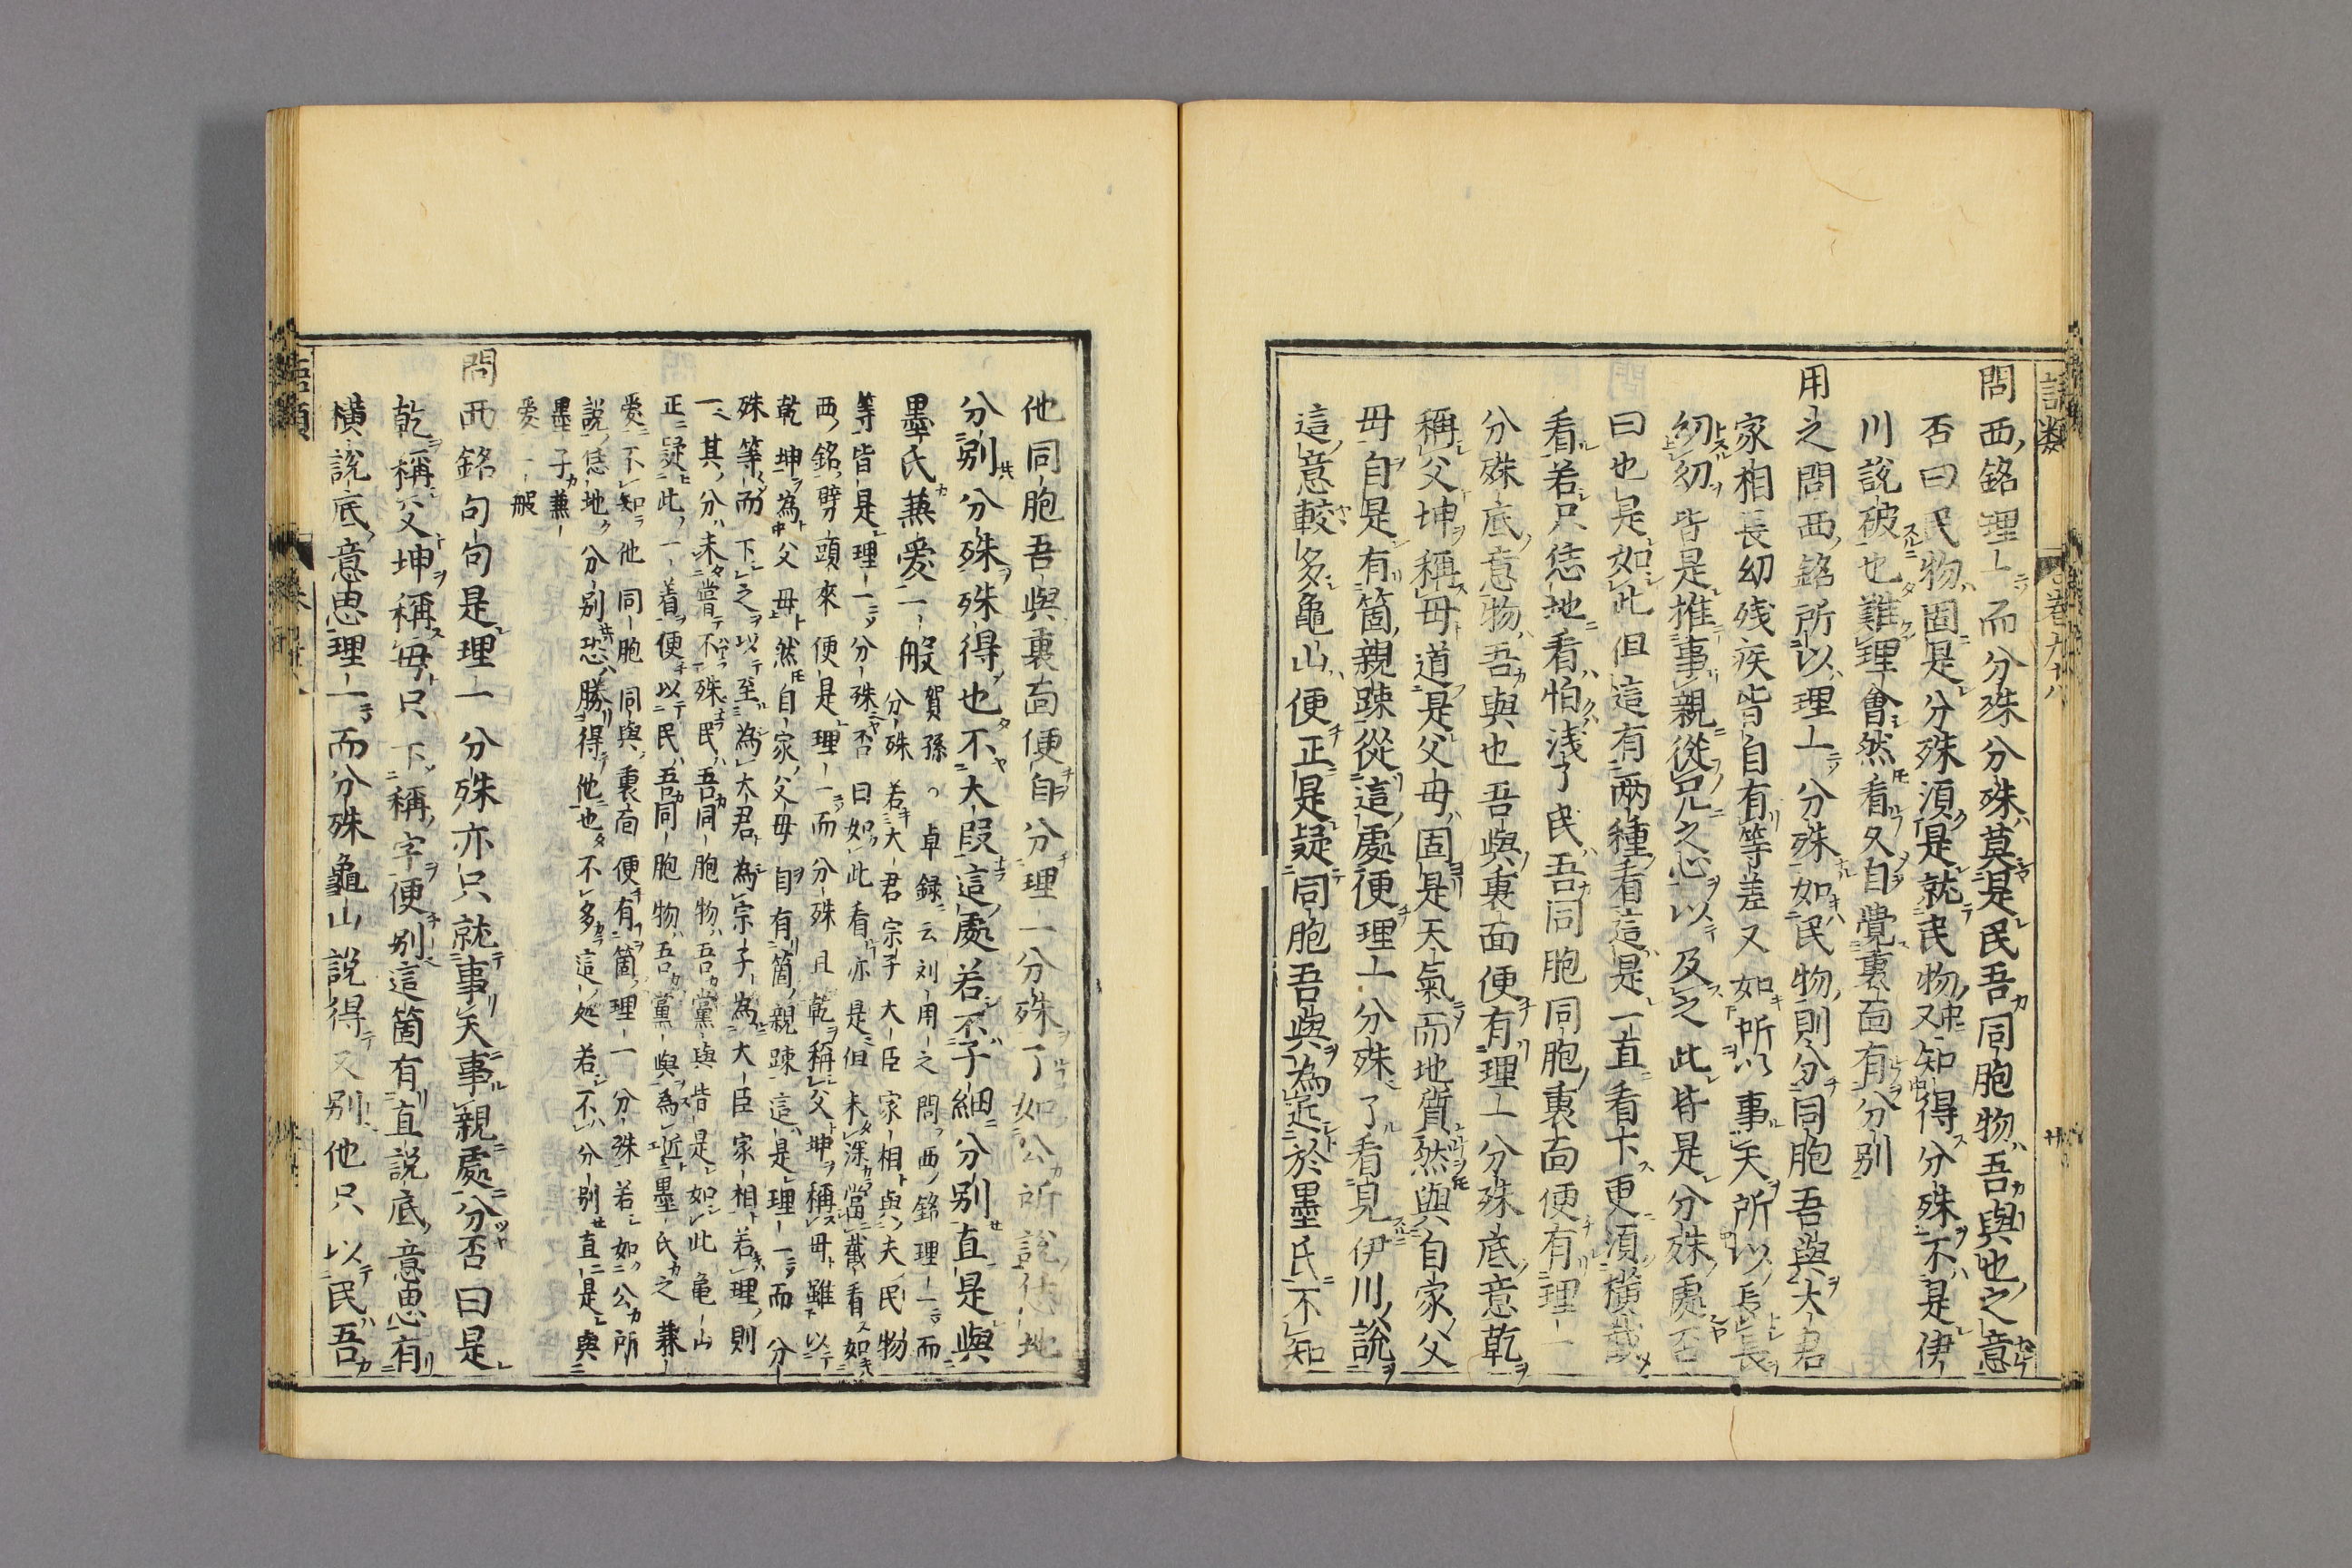 語類
卷九十八
廿
問西銘理一而分殊分殊莫是民吾同胞物吾與也之意
否曰民物固是分殊須是就民物中又知得分殊不是伊
川說破也難理會然看久自覺裏面有分別
用之問西銘所以理一分殊如民物則分同胞吾與大君
家相長幼残疾皆自有等差又如所以事天所以長長
幼幼皆是推事親從兄之心以及之此皆是分殊處否
曰也是如此但這有兩種看這是一直看下更須橫截
看若只恁地看怕浅了民吾同胞同胞裏面便有理一
分殊底意物吾與也吾與裏面便有理一分殊底意乾
稱父坤稱母道是父母固是天氣而地質然與自家父
母自是有箇親疎從這處便理一分殊了看見伊川說
這意較多龜山便正是疑同胞吾與為近於墨氏不知
他同胞吾與裏面便自分理一分殊了如公所說恁地
分別分殊殊得也不大叚這處若不子細分別直是與
墨氏兼愛一般
賀孫○卓録云刘用之問西銘理一而
分殊若大君宗子大臣家相與夫民物
等皆是理一分殊否曰如此看亦是但未深當截看如
西銘劈頭來便是理一而分殊且乾稱父坤稱母雖以
乾坤為父母然自家父母自有箇親疎這是理一而分
殊等而下之以至為大君為宗子為大臣家相若理則
一其分未嘗不殊民吾同胞物吾黨與皆是如此龜山
正疑此一着便以民吾同胞物吾黨與為近墨氏之兼
愛不知他同胞同與裏面便有箇理一分殊若如公所
說恁地分別恐勝得他也不多這処若不分別直是與
墨子兼
愛一般
問西銘句句是理一分殊亦只就事天事親處分否曰是
乾稱父坤稱母只下稱字便別這箇有直說底意思有
橫說底意思理一而分殊龜山說得又別他只以民吾
語類